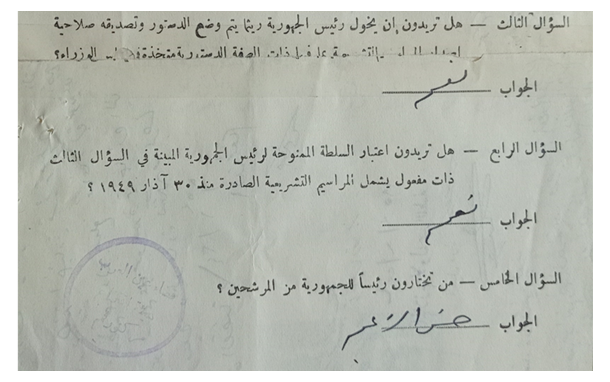 السؤال الثالث — هل تريدون ان يخول رئيس الجمهورية ريثما يتم وضع الدستور وتصديقه صلاحية
ذات الصفة الدستورية متخذة الوزراء؟
الجواب نعم
السؤال الرابع — هل تريدون اعتبار السلطة الممنوحة لرئيس الجمهورية المبينة في السؤال الثالث
ذات مفعول يشمل المراسيم التشريعية الصادرة منذ ٣٠ آذار ١٩٤٩ ؟
الجواب نعم
السؤال الخامس — من تختارون رئيساً للجمهورية من المرشحين ؟
الجواب حسني الزعيم